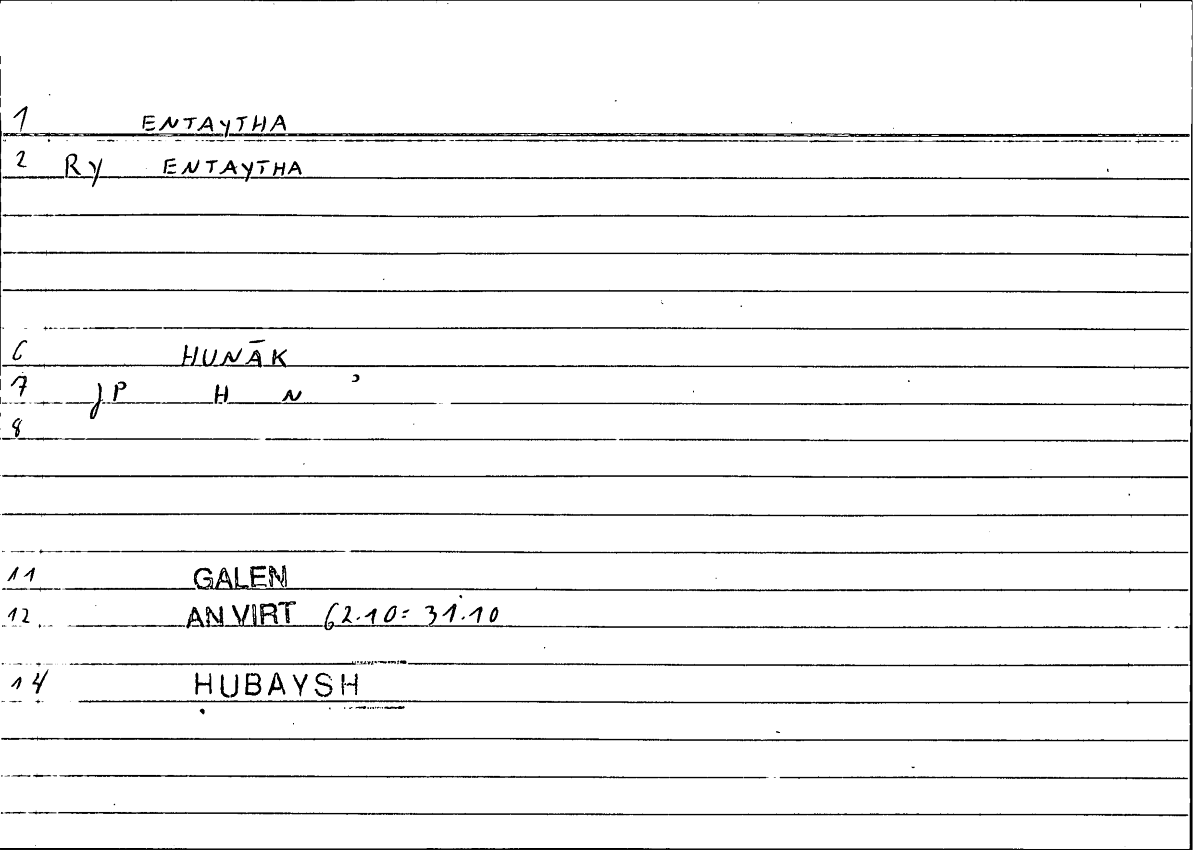 1 ENTAYTHA
2 Ry ENTAYTHA
6 HUNĀK
7 JP H N ʾ
8
11 GALEN
12 AN VIRT 62.10: 31.10
14 HUBAYSH